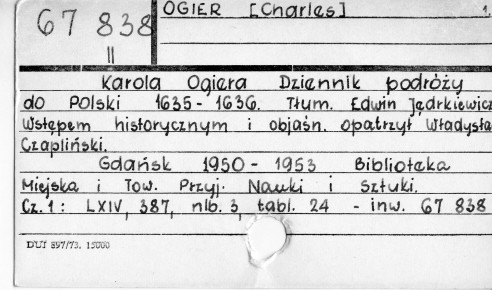 67 838
II
OGIER [Charles] 1.
Karola Ogiera Dziennik podróży
do Polski 1635-1636. Tłum. Edwin Jędrkiewicz
Wstępem historycznym i objaśn. opatrzył Władysła
Czapliński.
Gdańsk 1950-1953 Biblioteka
Miejska i Tow. Przyj. Nauki i Sztuki.
Cz. 1: LXIV, 387, nlb. 3, tabl. 24 - inw. 67 838
DUJ 897/73. 15000